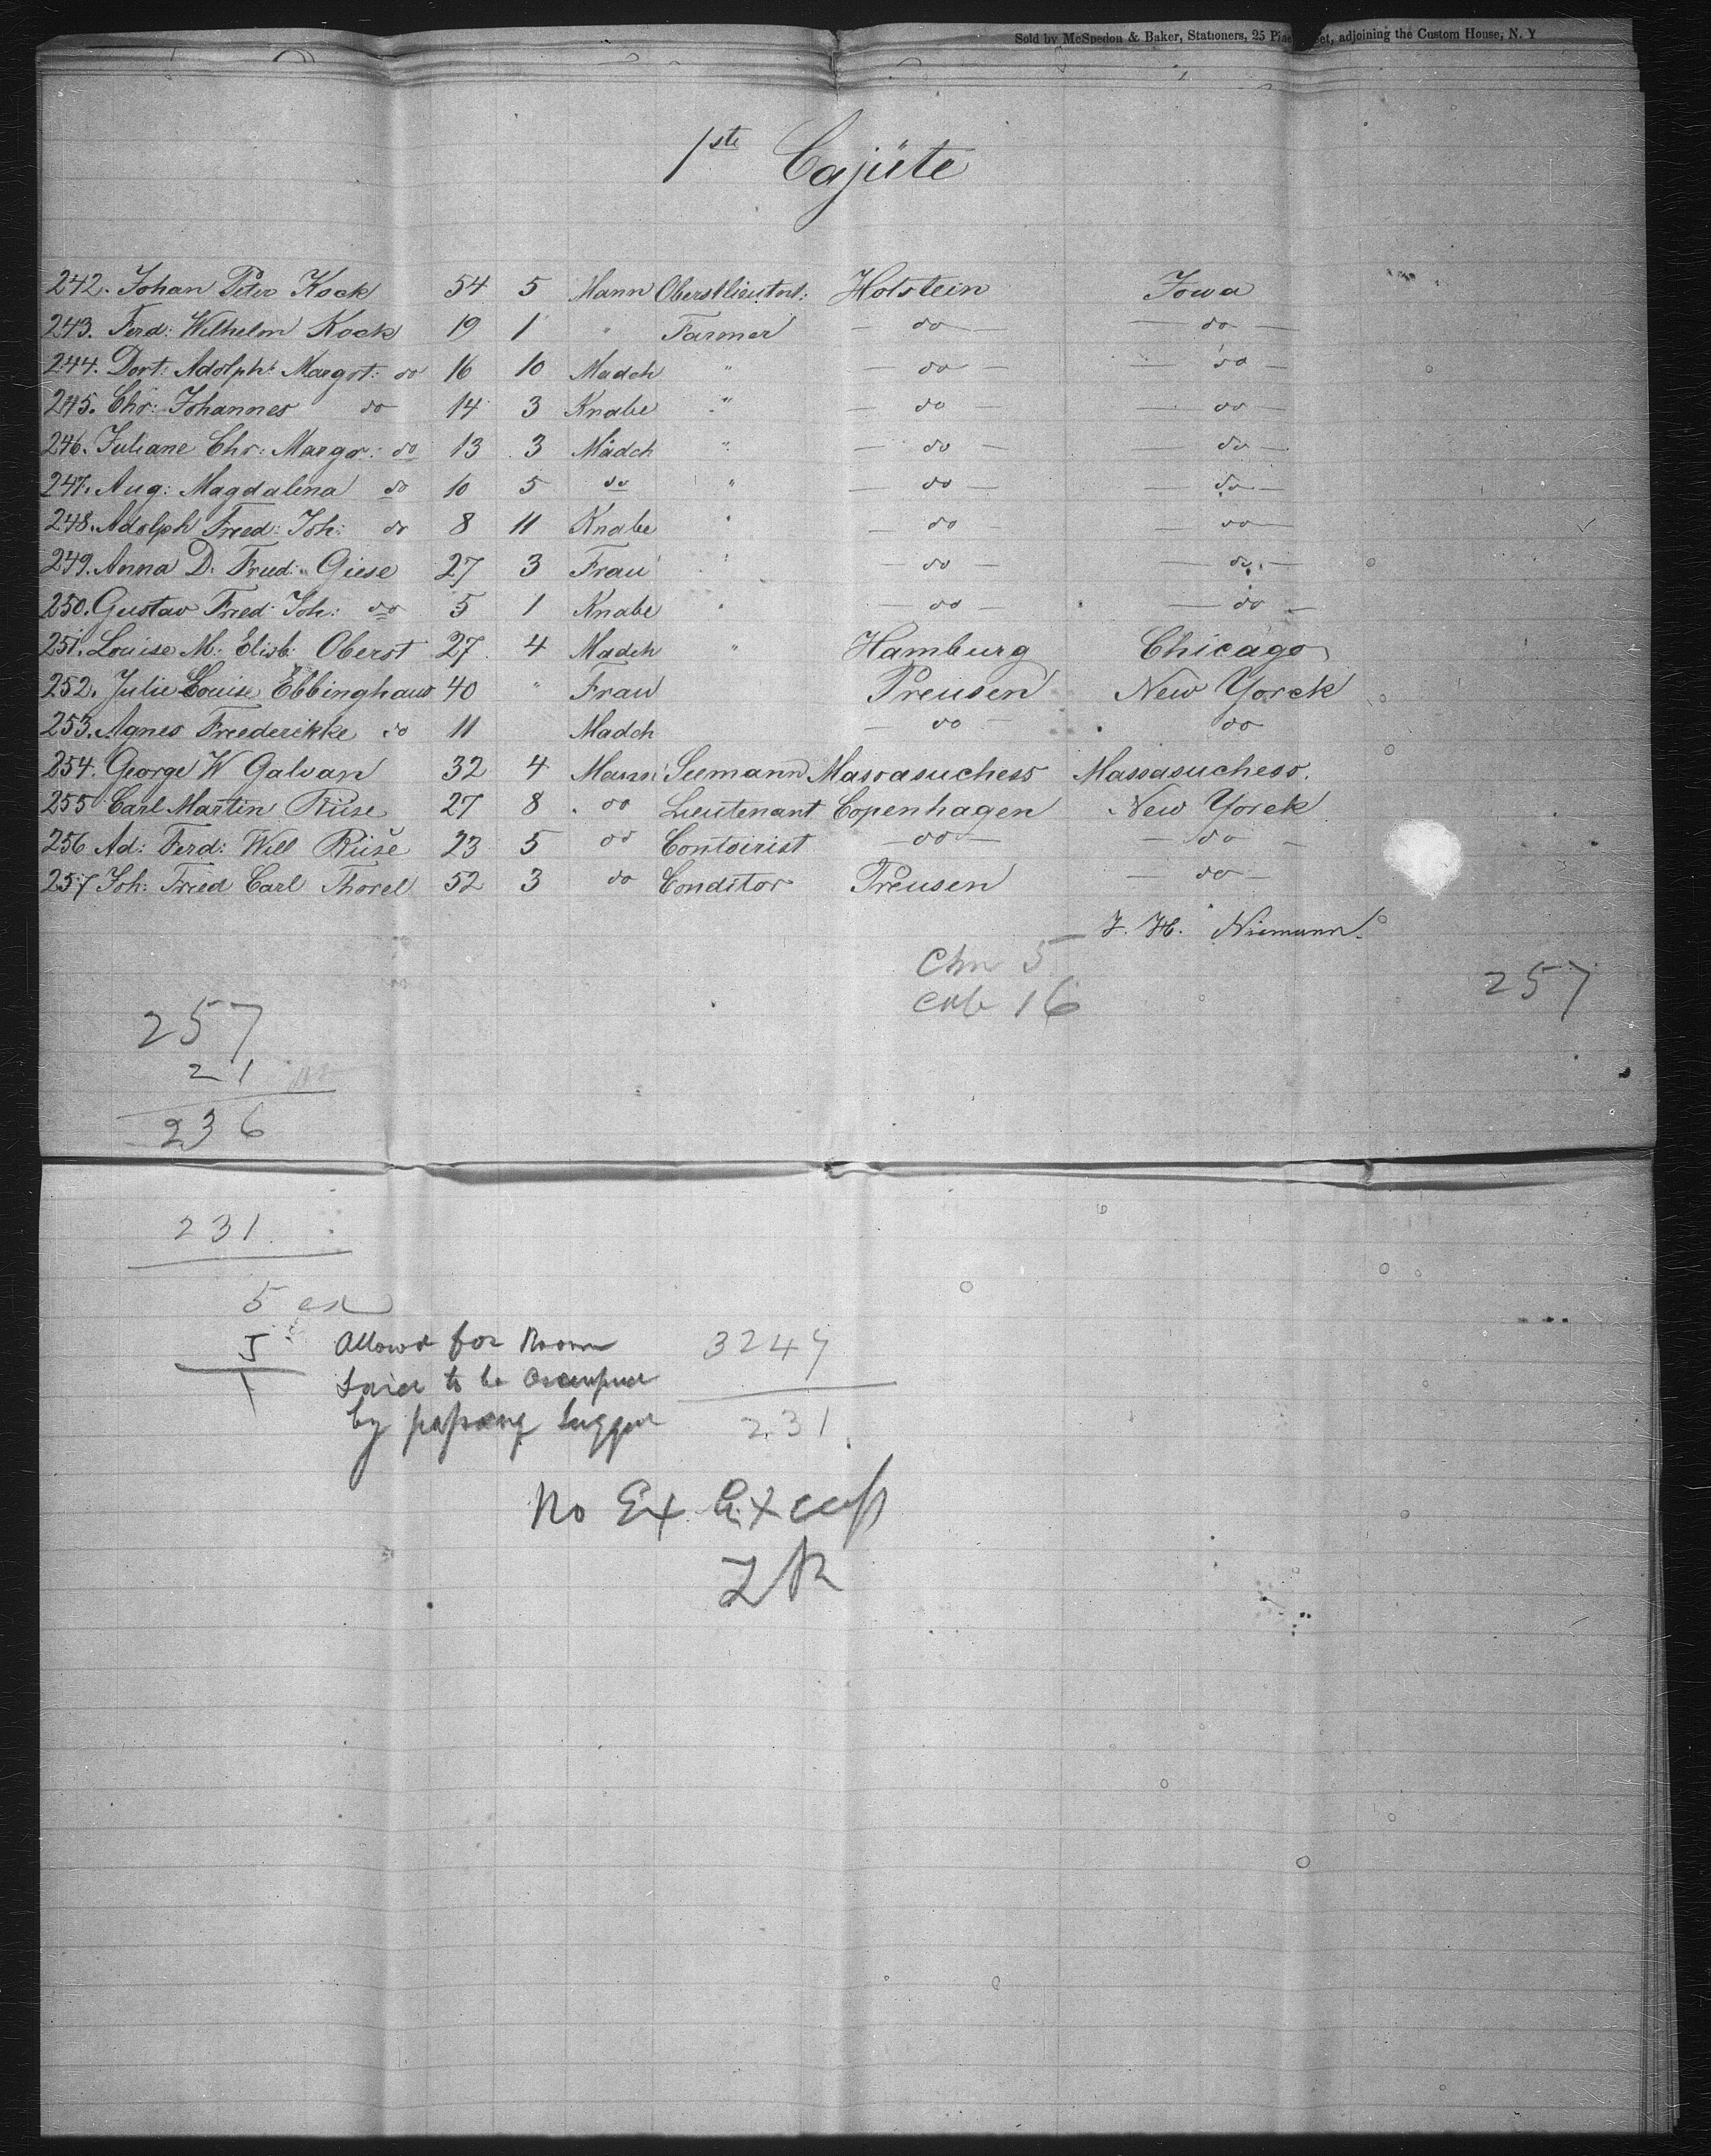 Sold by McSpedon & Baker, Stationers, 25 Pine Street, adjoining the Custom House, N. Y
1ste Cajüte
242. Johan Peter Kock 54 5 Mann Oberstlieutnt: Holstein Iowa
243. Ferd: Wilhelm Kock 19 1 " Farmer — do — — do —
244. Dort: Adolph: Margrt: do 16 10 Madch " — do — — do —
245. Chr: Johannes do 14 3 Knabe " — do — — do —
246. Juliane Chr: Margr: do 13 3 Mädch " — do — — do —
247. Aug: Magdalena do 10 5 do " — do — — do —
248. Adolph Freed: Joh: do 8 11 Knabe " — do — — do —
249. Anna D. Fried: Giese 27 3 Frau " — do — — do —
250. Gustav Fried: Joh: do 5 1 Knabe " — do — — do —
251. Louise M: Elisb: Oberst 27 4 Madch " Hamburg Chicago
252. Julie Louise Ebbinghaus 40 " Frau Preusen New Yorck
253. Agnes Freederikke do 11 Madch — do — do
254. George W Galvan 32 4 Mann Seemann Massasuchess Massasuchess.
255 Carl Martin Riise 27 8 do Lieutenant Copenhagen New Yorck
256 Ad: Ferd: Will Riise 23 5 do Contoirist — do — — do —
257 Joh: Fried Carl Thorel 52 3 do Conditor Preusen — do —
J. H. Niemann
Chn 5
Cab 16
257
257
21
236
231
5 ex
5 Allowd for Room 3247
said to be Occupied
by passeng luggae 231
No Ex. Excess